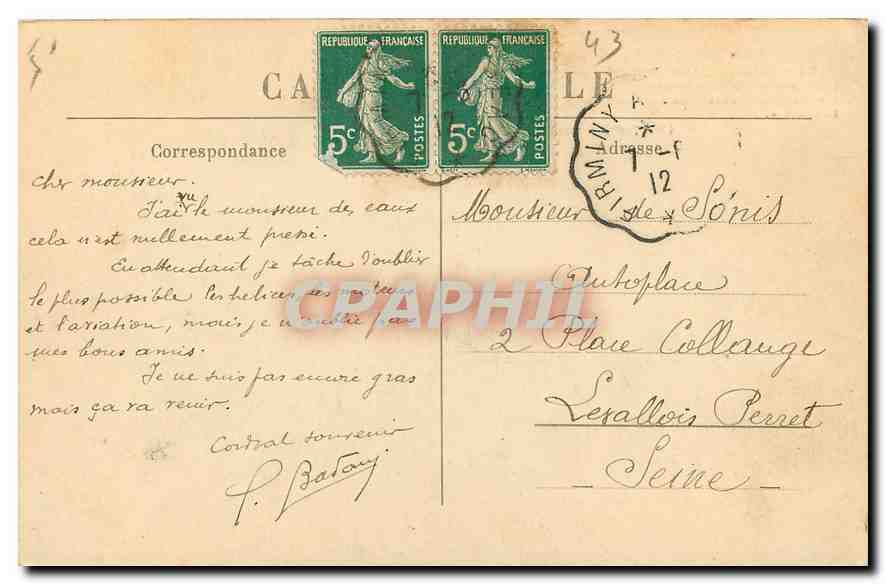 43
CA LE
REPUBLIQUE FRANÇAISE
5c POSTES
REPUBLIQUE FRANÇAISE
5c POSTES
FIRMINY
* 7 -
12
Correspondance
Adresse
cher monsieur.
J'ai vu le monsieur des eaux
cela n'est nullement pressé.
En attendant je tâche d'oublier
le plus possible les helices, les moteurs
et l'aviation, mais je n'oublie pas
mes bons amis.
Je ne suis pas encore gras
mais ça va venir.
Cordial souvenir
Monsieur de Sónis
Autoplace
2 Place Collange
Levallois Perret
Seine
CPAPHIL